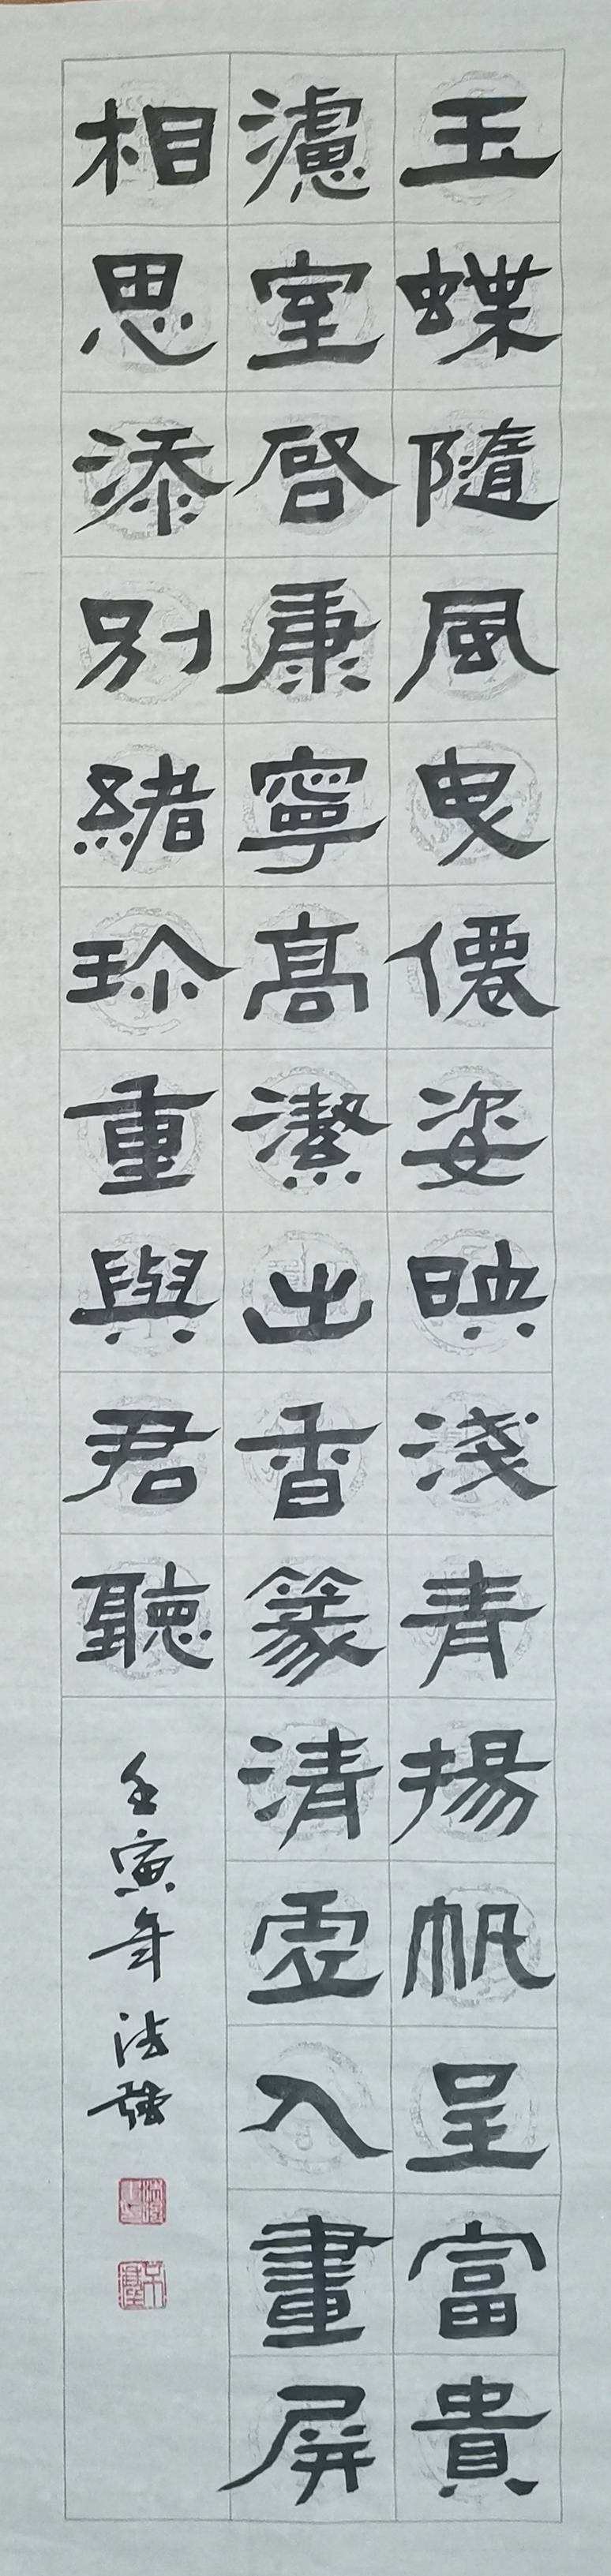 玉蝶隨風曳僊姿映淺青揚帆呈富貴
濾室啓康寧高潔出香篆清虛入畫屏
相思添別緒珍重與君聽
壬寅年法強